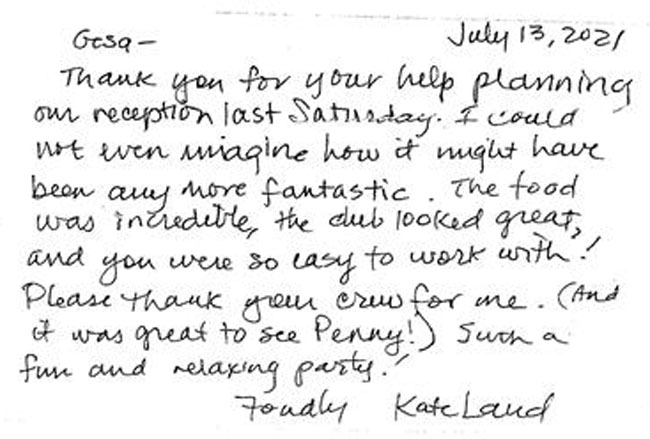 Gesa- July 13, 2021
Thank you for your help planning
our reception last Saturday. I could
not even imagine how it might have
been any more fantastic. The food
was incredible, the club looked great,
and you were so easy to work with!
Please thank your crew for me. (And
it was great to see Penny!) Such a
fun and relaxing party!
Fondly Kate Laud